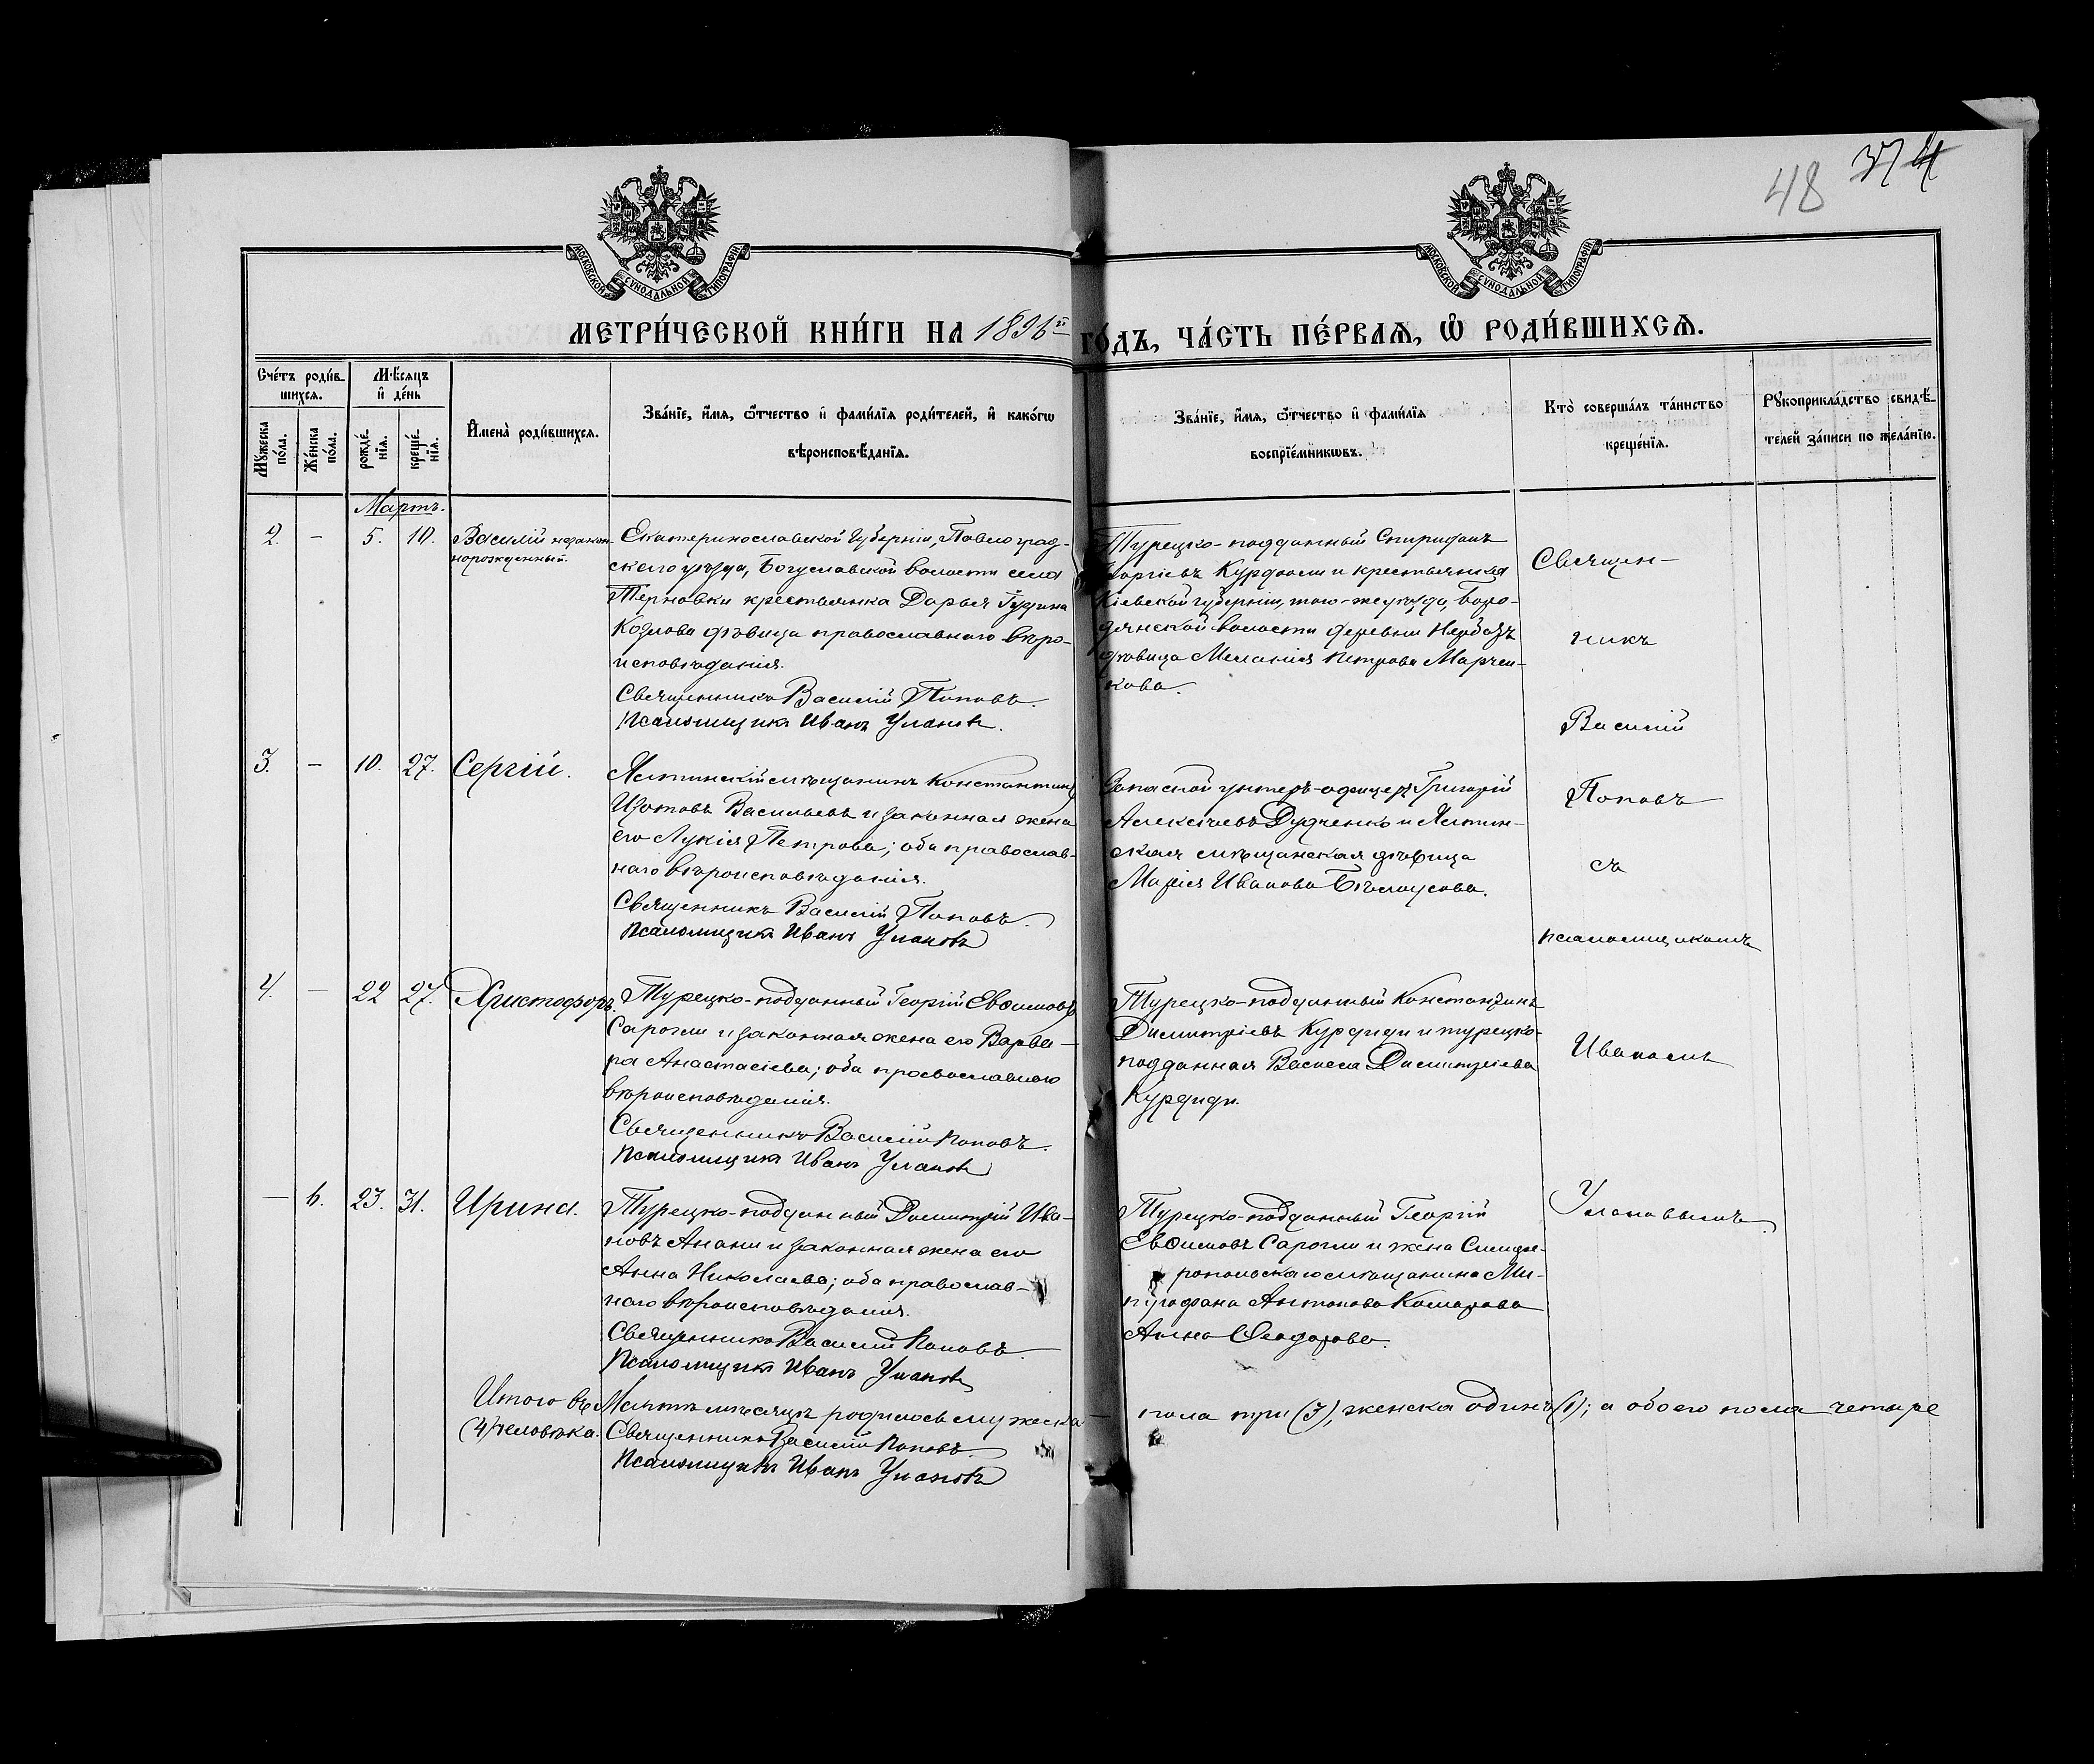 48 374
МОСКОВСКОЙ СѴНОДАЛЬНОЙ ТИПОГРАФІИ
МОСКОВСКОЙ СѴНОДАЛЬНОЙ ТИПОГРАФІИ
МЕТРИ́ЧЕСКОЙ КНИ́ГИ НА 1896й ГО́ДЪ, ЧА́СТЬ ПЕ́РВАѦ, Ѡ РОДИ́ВШИХСѦ.
Сче́тъ роди́в-
шихсѧ.
Мꙋ́жеска по́ла.
Же́нска по́ла.
Мѣ́сѧцъ
и де́нь
рожде́-
нїѧ.
креще́-
нїѧ.
Имена̀ роди́вшихсѧ.
Зва́нїе, и́мѧ, ѻ́тчество и фами́лїѧ роди́телей, и како́гѡ
вѣроисповѣ́данїѧ.
Зва́нїе, и́мѧ, ѻ́тчество и фами́лїѧ
воспрїе́мникѡвъ.
Кто̀ соверша́лъ та́инство
креще́нїѧ.
Рꙋкоприкла́дство свидѣ́-
телей за́писи по жела́нїю.
Мартъ.
2. — 5. 10. Василій незакон-
норожденный.
Екатеринославской Губерніи, Павлоград-
скаго уѣзда, Богуславской волости села
Терновки крестьянка Дарья
Козлова дѣвица православнаго вѣро-
исповѣданія.
Священникъ Василій Поповъ.
Псаломщикъ Иванъ Улановъ.
Турецко-подданный Спиридонъ
Георгіевъ Курдогли и крестьянка
Кіевской губерніи, того-же уѣзда, Боро-
дянской волости деревни
дѣвица Меланія Петрова Марчен-
кова.
Священ-
никъ
Василій
Поповъ
съ
псаломщикомъ
Иваномъ
Улановымъ.
3. — 10. 27. Сергій.
Ялтинскій мѣщанинъ Константинъ
Изотовъ Васильевъ и законная жена
его Лукія Петрова; оба православ-
наго вѣроисповѣданія.
Священникъ Василій Поповъ.
Псаломщикъ Иванъ Улановъ
Запасной унтеръ-офицеръ Григорій
Алексѣевъ Дудченко и Ялтин-
ская мѣщанская дѣвица
Марія Иванова Бѣлоусова.
4. — 22 27. Христофоръ.
Турецко-подданный Георгій Евѳимовъ
Сарогли и законная жена его Варва-
ра Анастасіева; оба православнаго
вѣроисповѣданія.
Священникъ Василій Поповъ.
Псаломщикъ Иванъ Улановъ
Турецко-подданный Константинъ
Димитріевъ Курдиди и турецко-
подданная Василса Димитріева
Курдиди.
— 1. 23. 31. Ирина.
Турецко-подданный Димитрій Ива-
новъ Анани и законная жена его
Анна Николаева; оба православ-
наго вѣроисповѣданія.
Священникъ Василій Поповъ.
Псаломщикъ Иванъ Улановъ
Турецко-подданный Георгій
Евѳимовъ Сарогли и жена Симфе-
ропольскаго мѣщанина Ми-
трофана Антонова Комарова
Анна Ѳеодорова.
Итого въ Мартѣ мѣсяцѣ родилось мужеска пола три (3), женска одинъ (1); а обоего пола четыре
(4) человѣка. Священникъ Василій Поповъ
Псаломщикъ Иванъ Улановъ